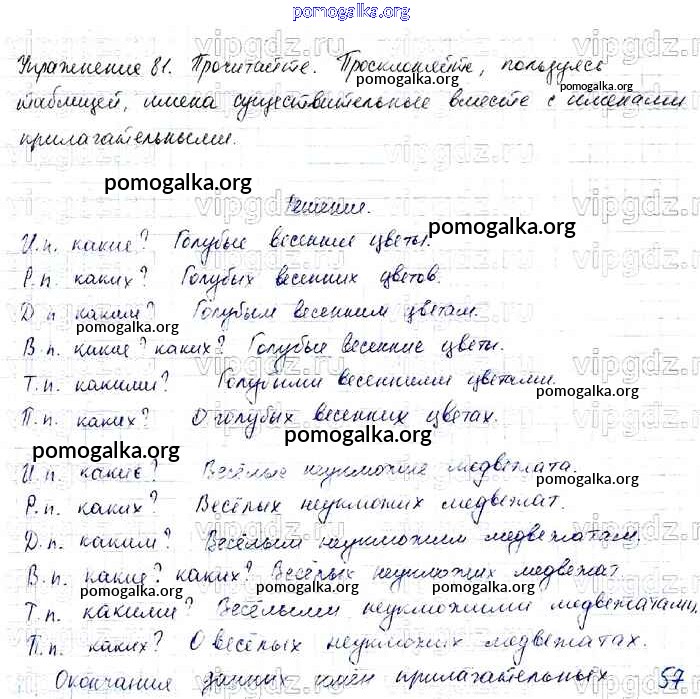 pomogalka.org
Упражнение 81. Прочитайте. Просклоняйте, пользуясь
pomogalka.org
таблицей, имена существительные вместе с именами
pomogalka.org
прилагательными.
pomogalka.org
Решение.
pomogalka.org
И.п. какие? Голубые весенние цветы.
Р.п. каких? Голубых весенних цветов.
Д.п. каким? Голубым весенним цветам.
pomogalka.org
pomogalka.org
В.п. какие? каких? Голубые весенние цветы.
Т.п. какими? Голубыми весенними цветами.
pomogalka.org
П.п. каких? О голубых весенних цветах.
pomogalka.org
pomogalka.org
И.п. какие? Весёлые неуклюжие медвежата.
pomogalka.org
Р.п. каких? Весёлых неуклюжих медвежат.
Д.п. каким? Весёлым неуклюжим медвежатам.
pomogalka.org
В.п. какие? каких? Весёлых неуклюжих медвежат
Т.п. какими? Весёлыми неуклюжими медвежатами
pomogalka.org
П.п. каких? О весёлых неуклюжих медвежатах.
Окончания данных имён прилагательных
57
vipgdz.ru